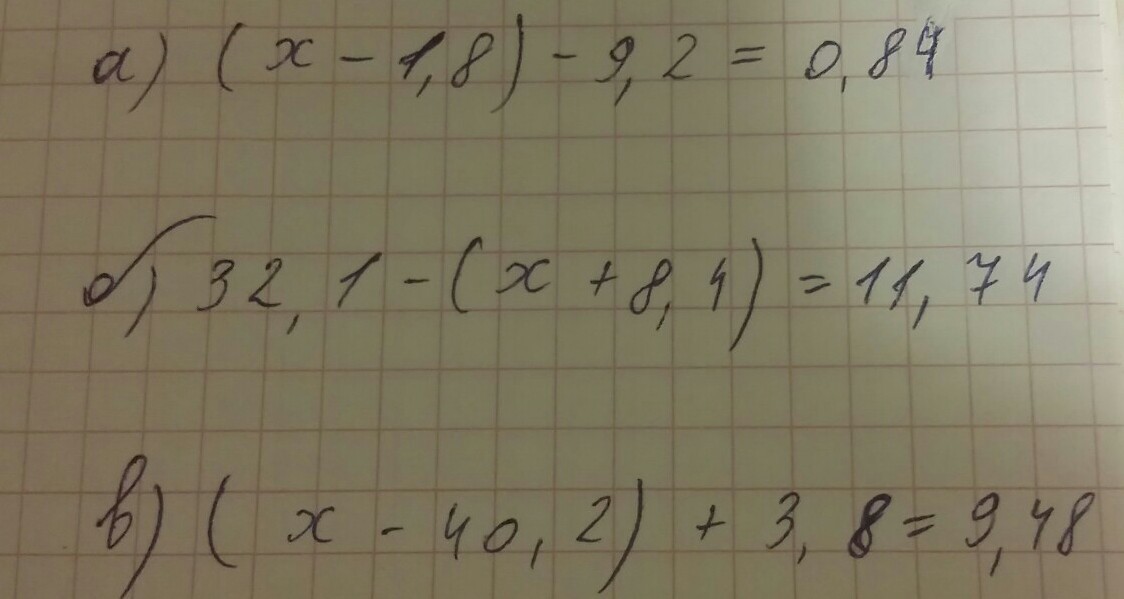 а) (x - 1,8) - 9,2 = 0,84
б) 32,1 - (x + 8,4) = 11,74
в) (x - 40,2) + 3,8 = 9,48